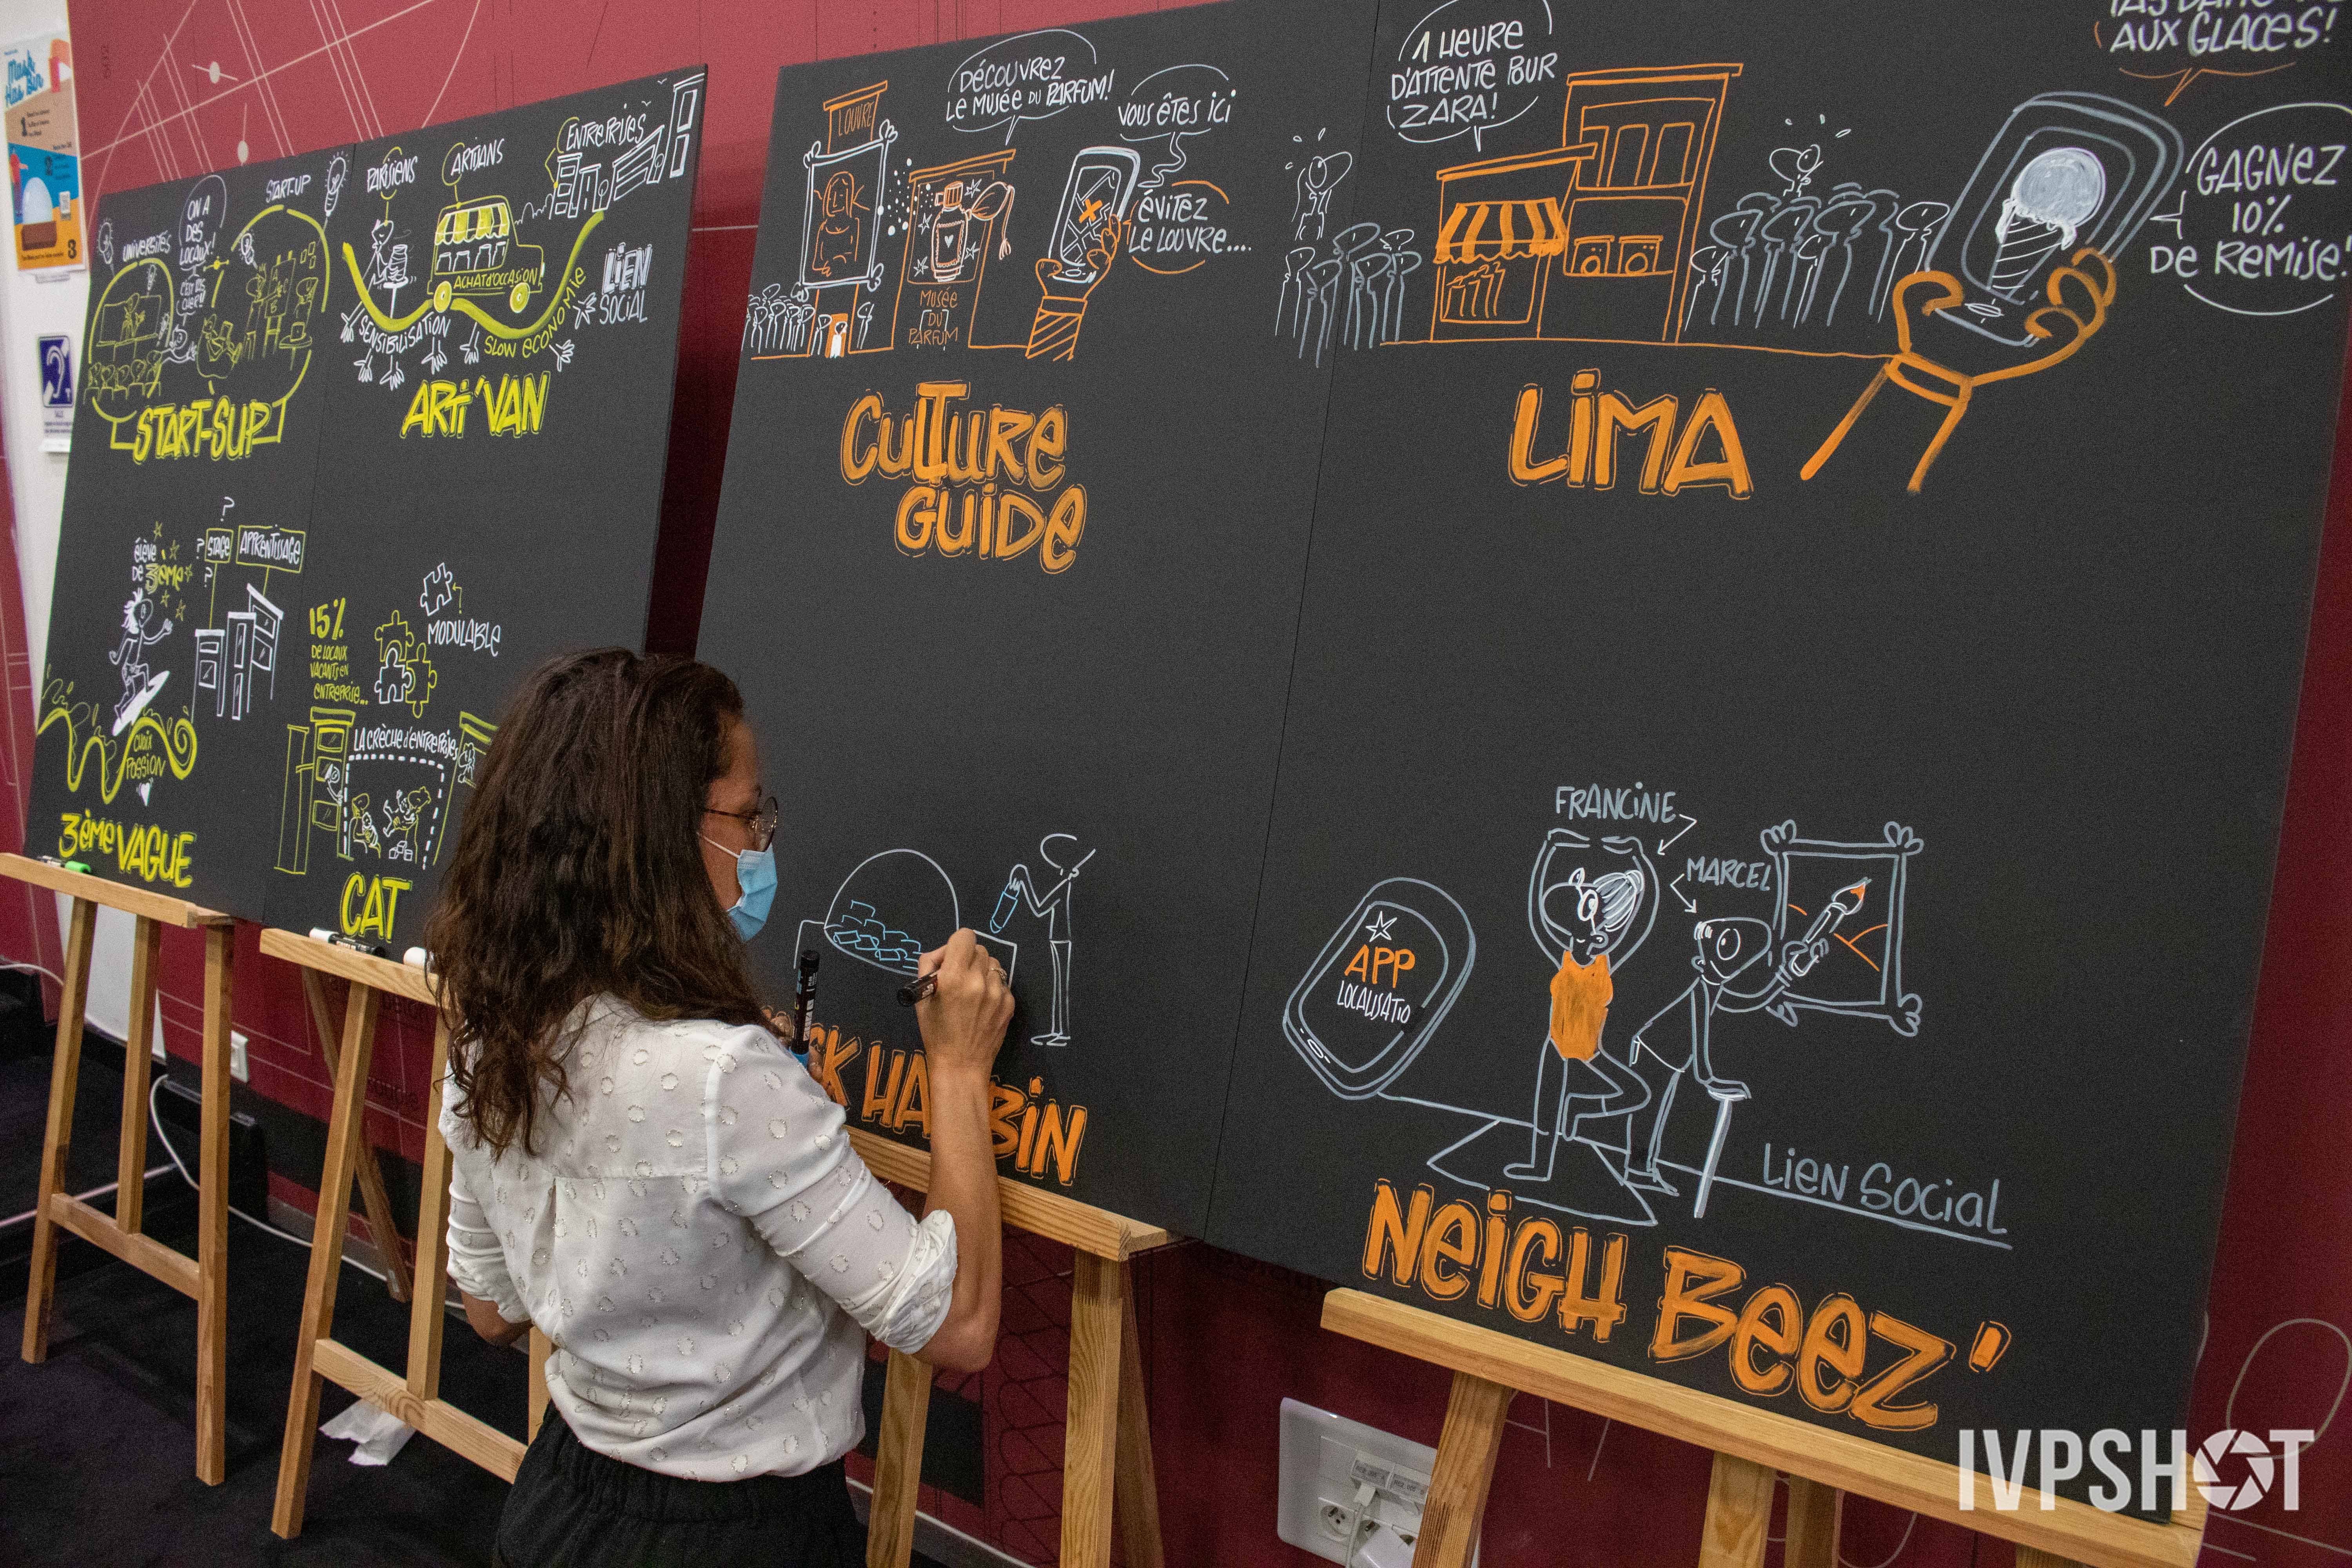 Mask
Has Bin
1
2
3
UNIVERSITÉS
ON A
DES
LOCAUX!
START-UP
START-SUP
PARISIENS
ARTISANS
ENTREPRISES
ACHAT D'OCCASION
SENSIBILISATION
SLOW ECONOMIE
LIEN
SOCIAL
ARTI'VAN
élève
DE 3ème
?
?
?
STAGE
APPRENTISSAGE
CHOIX
PASSION
3ème VAGUE
15%
DE LOCAUX
VACANTS EN
ENTREPRISE...
MODULABLE
LA CRÈCHE d'ENTREPRISES
CAT
LOUVRE
DÉCOUVREZ
LE MUSÉE DU PARFUM!
VOUS ÊTES ICI
ÉVITEZ
LE LOUVRE....
MUSÉE
DU
PARFUM
CULTURE
GUIDE
1 HEURE
D'ATTENTE POUR
ZARA!
AUX GLACES!
GAGNEZ
10%
DE REMISE!
LIMA
BIN
FRANCINE
MARCEL
APP
LOCALISATIO
LIEN SOCIAL
NEIGH BEEZ'
IVPSHOT